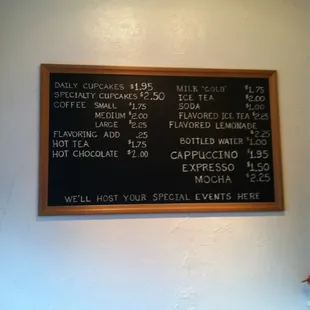 DAILY CUPCAKES $1.95
SPECIALTY CUPCAKES $2.50
COFFEE SMALL $1.75
MEDIUM $2.00
LARGE $2.25
FLAVORING ADD .25
HOT TEA $1.75
HOT CHOCOLATE $2.00
MILK "COLD" $1.75
ICE TEA $2.00
SODA $1.00
FLAVORED ICE TEA $2.25
FLAVORED LEMONADE
$2.25
BOTTLED WATER $1.00
CAPPUCCINO $1.95
EXPRESSO $1.50
MOCHA $2.25
WE'LL HOST YOUR SPECIAL EVENTS HERE